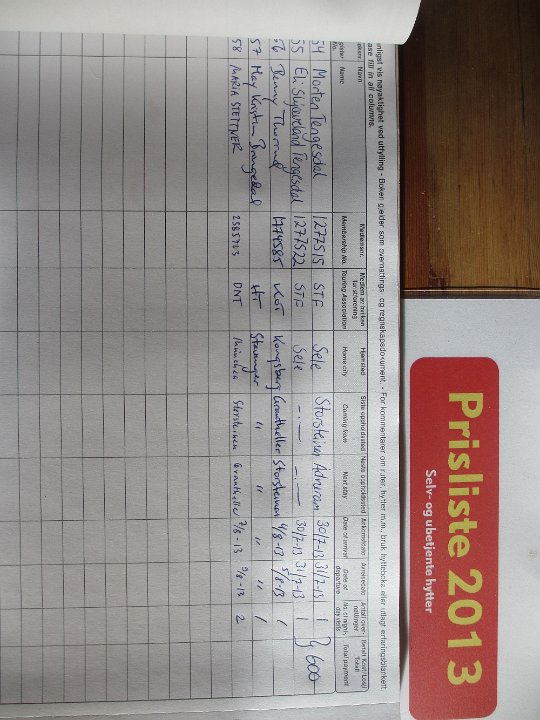 nligst vis nøyaktighet ved utfylling - Boken gjelder som overnattings- og regnskapsdokument. - For kommentarer om ruter, hytter m.m., bruk hytteboka eller utlagt erfaringsblankett.
ase fill in all columns.
Navn Medlemsnr. Medlem av hvilken turistforening Hjemsted Siste oppholdssted Neste oppholdssted Ankomstdato Avreisedato Antall overnattinger
No. Name Membership No. Touring Association Home city Coming from Next stay Date of arrival Date of departure No. of nights day visits Total payment
54 Morten Tengesdal 1277515 STF Sele Storsteinen Adneram 30/7-13 31/7-13 1 } 600
55 Eli Tengesdal 1277522 STF Sele - . - - . - 30/7-13 31/7-13 1
56 Benny 1774585 Kongsberg Grautheller Storsteinen 4/8-13 5/8-13 1
57 May Kristin HT Stavanger " " " "
58 MARIA STETTNER DNT München Storsteinen Grautheller 7/8-13 9/8-13 2
Prisliste 2013
Selv- og ubetjente hytter